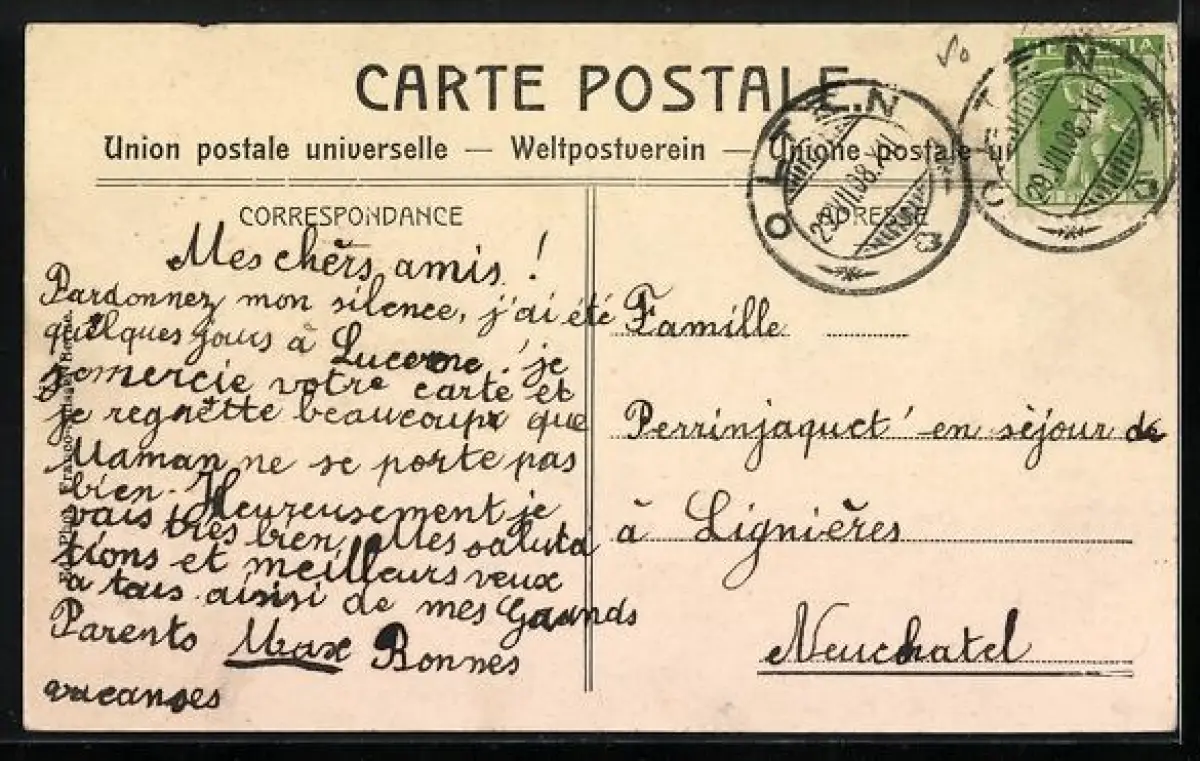 CARTE POSTALE.
Union postale universelle — Weltpostverein — Unione postale un
CORRESPONDANCE
ADRESSE
HELVETIA
OLTEN
29.VII.08.XI
OLTEN
29.VII.08.XI
Mes chêrs amis !
Pardonnez mon silence, j'ai été
quelques jours à Lucerne, je
remercie votre carte et
je regnette beaucoup que
Maman ne se porte pas
bien. Heureusement je
vais très bien. Mes saluta
tions et meilleurs veux
a tous aisisi de mes Grands
Parents Max Bonnes
vacanses
Famille
Perrinjaquet en sèjour de
à Lignières
Neuchatel